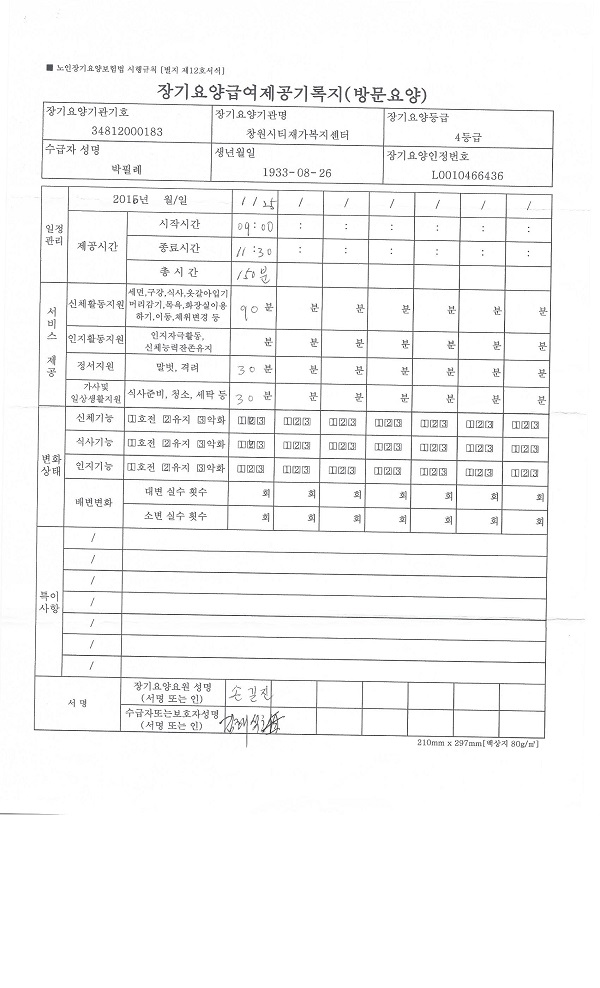 ■ 노인장기요양보험법 시행규칙 [별지 제12호서식]
장기요양급여제공기록지(방문요양)
장기요양기관기호 장기요양기관명 장기요양등급
34812000183 창원시티재가복지센터 4등급
수급자 성명 생년월일 장기요양인정번호
박필례 1933-08-26 L0010466436
일정관리 2015년 월/일 1/25 / / / / / /
제공시간 시작시간 09:00 : : : : : :
종료시간 11:30 : : : : : :
총 시 간 150분
서비스 제공 신체활동지원 세면,구강,식사,옷갈아입기
머리감기,목욕,화장실이용
하기,이동,체위변경 등 90 분 분 분 분 분 분 분
인지활동지원 인지자극활동,
신체능력잔존유지 분 분 분 분 분 분 분
정서지원 말벗, 격려 30 분 분 분 분 분 분 분
가사및
일상생활지원 식사준비, 청소, 세탁 등 30 분 분 분 분 분 분 분
변화상태 신체기능 1호전 2유지 3악화 123 123 123 123 123 123 123
식사기능 1호전 2유지 3악화 123 123 123 123 123 123 123
인지기능 1호전 2유지 3악화 123 123 123 123 123 123 123
배변변화 대변 실수 횟수 회 회 회 회 회 회 회
소변 실수 횟수 회 회 회 회 회 회 회
특이사항 /
/
/
/
/
/
/
서 명 장기요양요원 성명
(서명 또는 인) 손길진
수급자또는보호자성명
(서명 또는 인)
210mm x 297mm[백상지 80g/㎡]